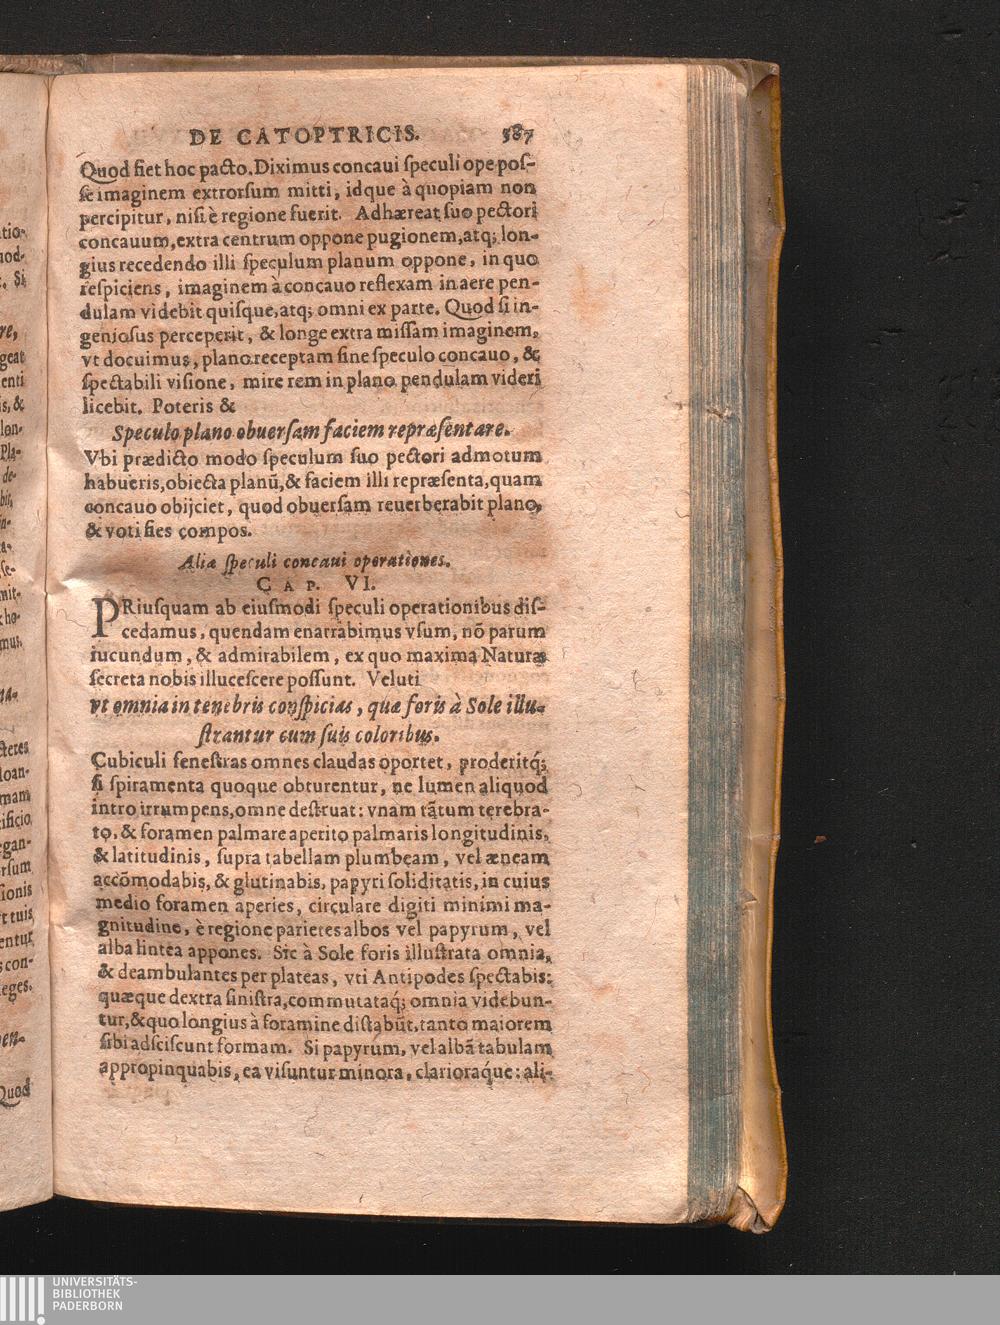 DE CATOPTRICIS. 587
Quod fiet hoc pacto. Diximus concaui ſpeculi ope poſ-
ſe imaginem extrorſum mitti, idque à quopiam non
percipitur, niſi è regione fuerit. Adhæreat ſuo pectori
concauum, extra centrum oppone pugionem, atq; lon-
gius recedendo illi ſpeculum planum oppone, in quo
reſpiciens, imaginem à concauo reflexam in aere pen-
dulam videbit quiſque, atq; omni ex parte. Quod ſi in-
genioſus perceperit, & longe extra miſſam imaginem,
vt docuimus, plano receptam ſine ſpeculo concauo, &
ſpectabili viſione, mire rem in plano pendulam videri
licebit. Poteris &
Speculo plano obuerſam faciem repræſentare.
Vbi prædicto modo ſpeculum ſuo pectori admotum
habueris, obiecta planũ, & faciem illi repræſenta, quam
concauo obijciet, quod obuerſam reuerberabit plano,
& voti fies compos.
Aliæ ſpeculi concaui operationes.
CAP. VI.
PRiuſquam ab eiuſmodi ſpeculi operationibus diſ-
cedamus, quendam enarrabimus vſum, nõ parum
iucundum, & admirabilem, ex quo maxima Naturæ
ſecreta nobis illuceſcere poſſunt. Veluti
vt omnia in tenebris conſpicias, quæ foris à Sole illu-
ſtrantur cum ſuis coloribus.
Cubiculi feneſtras omnes claudas oportet, proderitq́;
ſi ſpiramenta quoque obturentur, ne lumen aliquod
intro irrumpens, omne deſtruat: vnam tãtum terebra-
to, & foramen palmare aperito palmaris longitudinis,
& latitudinis, ſupra tabellam plumbeam, vel æneam
accõmodabis, & glutinabis, papyri ſoliditatis, in cuius
medio foramen aperies, circulare digiti minimi ma-
gnitudine, è regione parietes albos vel papyrum, vel
alba lintea appones. Sic à Sole foris illuſtrata omnia,
& deambulantes per plateas, vti Antipodes ſpectabis:
quæque dextra ſiniſtra, commutataq́; omnia videbun-
tur, & quo longius à foramine diſtabũt, tanto maiorem
ſibi adſciſcunt formam. Si papyrum, vel albã tabulam
appropinquabis, ea viſuntur minora, clarioraq́ue: ali-
tio-
nod-
. Si
re,
geat
enti
is, &
lon-
Pla-
de-
bit,
in-
ta-
ſe-
mit-
ho-
mus,
na-
cteres
loan-
mam
ificio
gan-
rſum
ſionis
t tuis
entur
con-
eges.
en-
Quod
UNIVERSITÄTS-
BIBLIOTHEK
PADERBORN